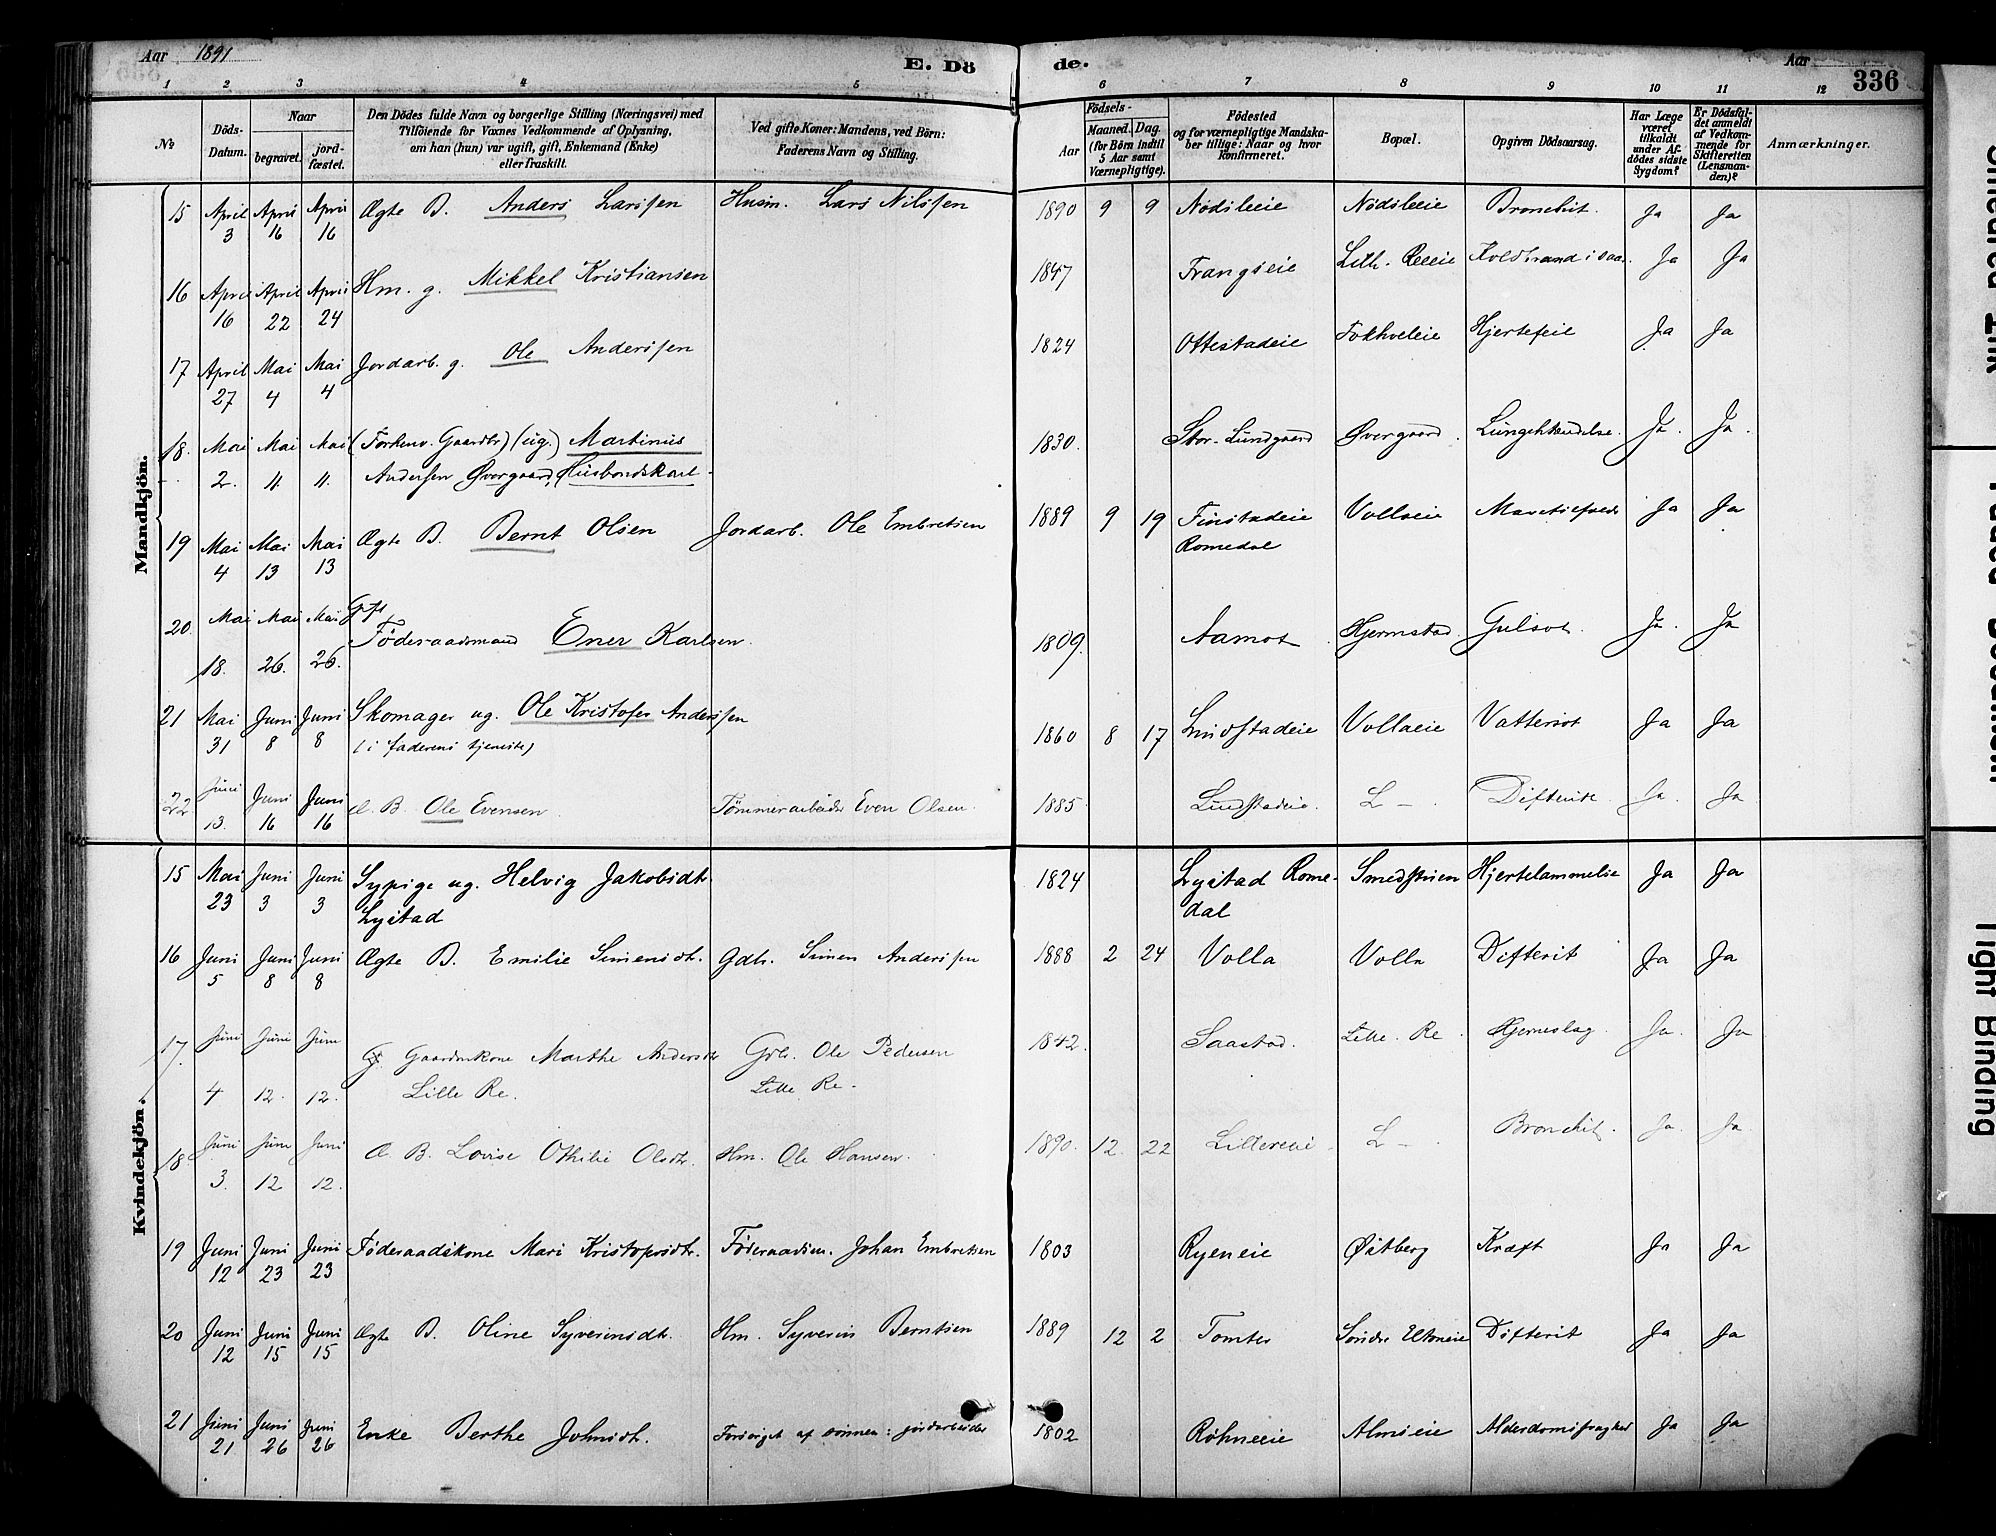 Aar 1891
E. Dö de.
Aar
336
1 2 3 4 5 6 7 8 9 10 11 12
No
Döds-Datum.
Naar
begravet.
jord-fæstet.
Den Dödes fulde Navn og borgerlige Stilling (Næringsvei) med
Tilföiende for Voxnes Vedkommende af Oplysning,
om han (hun) var ugift, gift, Enkemand (Enke)
eller fraskilt.
Ved gifte Koner: Mandens, ved Börn:
Faderens Navn og Stilling.
Födsels-
Aar
Maaned. Dag.
(for Börn indtil
5 Aar samt
Værnepligtige).
Födested
og for værnepligtige Mandska-
ber tillige: Naar og hvor
konfirmeret.
Bopæl.
Opgiven Dödsaarsag.
Har Læge
været
tilkaldt
under Af-
dödes sidste
Sygdom?
Er Dödsfal-
det anmeldt
af Vedkom-
mende for
Skifteretten
(Lensman-
den)?
Anmærkninger.
Mandkjön.
15 April 3 April 16 April 16 Ægte B. Anders Larssen Husm. Lars Nilssen 1890 9 9 Nødsleeie Nødsleeie Bronchit. Ja Ja
16 April 16 April 22 April 24 Hm. g. Mikkel Kristiansen 1847 Frangseie Lill. Reeie Koldbrand i saar Ja Ja
17 April 27 Mai 4 Mai 4 Jordarb. g. Ole Anderssen 1824 Ottestadeie Fokhveleie Hjertefeil Ja Ja
18. Mai 2. Mai 11. Mai 11. (Forhenv. Gaardbr) (ug.) Martinus 1830. Stor-Lundgaard Øvergaard. Ja. Ja.
Andersen Øvergaard, Husbondskarl
19 Mai 4 Mai 13 Mai 13 Ægte B. Bernt Olsen Jordarb. Ole Embretsen 1889 9 19 Finstadeie Vollaeie Ja Ja
Romedal
20. Mai 18. Mai 26. Mai 26. Gift
Føderaadsmand Ener Karlsen. 1809. Aamot Hjermstad. Gulsot. Ja. Ja
21 Mai 31 Juni 8 Juni 8 Skomager ug. Ole Kristofer Anderssen 1860 8 17 Lundstadeie Vollaeie Vattersot Ja Ja
(i faderens tjeneste)
22 Juni 13. Juni 16 Juni 16 Æ. B. Ole Evensen. Tømmerarbeider Even Olsen. 1885. Lundstadeie. L – . Difterit. Ja. Ja
Kvindekjön.
15 Mai 23 Juni 3 Juni 3 Sypige ug. Helvig Jakobsdtr 1824 Lystad Rome- Smedstuen Hjertelammelse Ja Ja
Lystad dal
16 Juni 5 Juni 8 Juni 8 Ægte B. Emilie Simensdt. Gdb. Simen Anderssen 1888 2 24 Volla Volla Difterit Ja Ja
17. Juni 4 Juni 12. Juni 12. G. Gaardmkone Marthe Andersdtr Grbr. Ole Pedersen 1842. Saastad. Lille. Re Hjerneslag. Ja. Ja
Lille Re. Lille Re.
18 Juni 3. Juni 12 Juni 12. Æ. B. Lovise Othilie Olsdtr. Hm. Ole Hansen. 1890. 12. 22 Lillereeie L – . Bronchit. Ja. Ja.
19 Juni 12 Juni 23 Juni 23 Føderaadskone Mari Kristofersdtr. Føderaadsm. Johan Embretsen 1803 Ryeneie Østberg Kræft Ja Ja
20 Juni 12 Juni 15 Juni 15 Ægte B. Oline Syverinsdt. Hm. Syverin Berntsen 1889 12 2 Tomter Søndre Difterit Ja Ja
21 Juni 21 Juni 26 Juni 26 Enke Berthe Johnsdt. Forsørget af sønnen: jordarbeider 1802 Røhneeie Almseie Ja Ja
Tight Binding